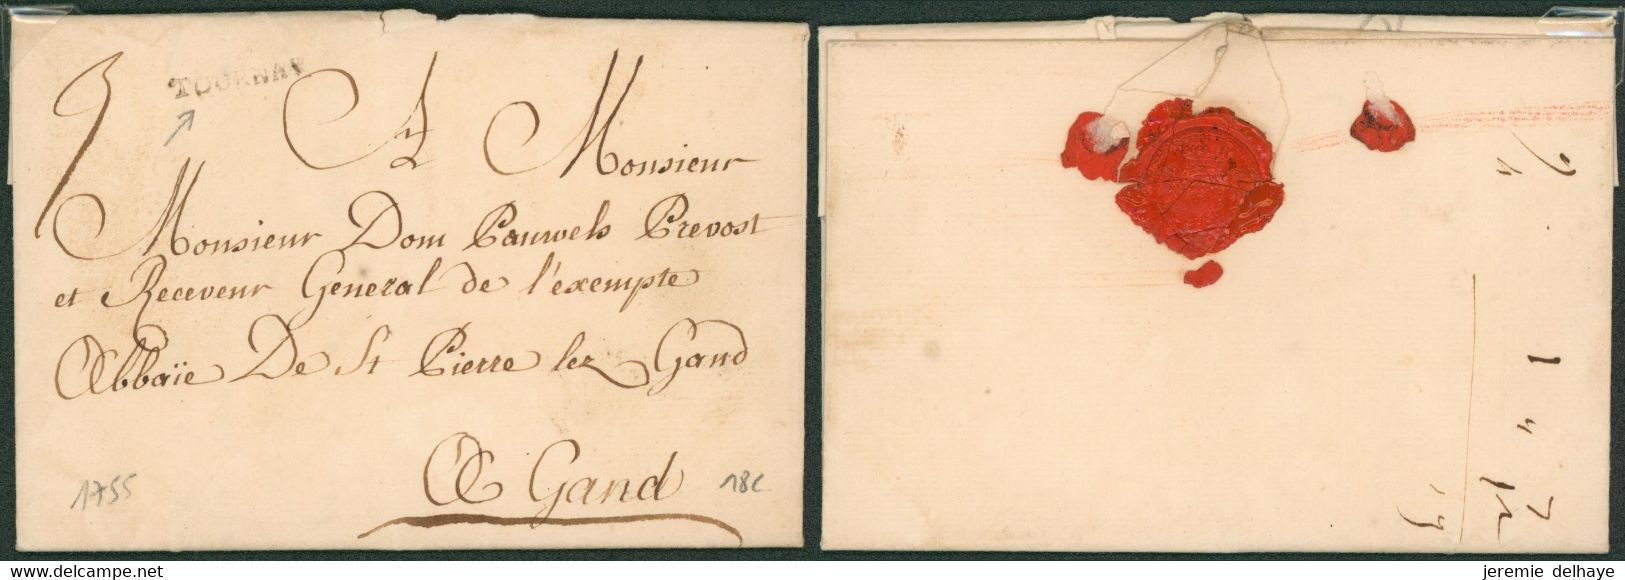 TOURNAY
3 A Monsieur
Monsieur Dom Pauwels Prevost
et Receveur General de l'exempte
Abbaïe De St Pierre lez Gand
A Gand
1755
18c
Delcampe.net
jeremie delhaye